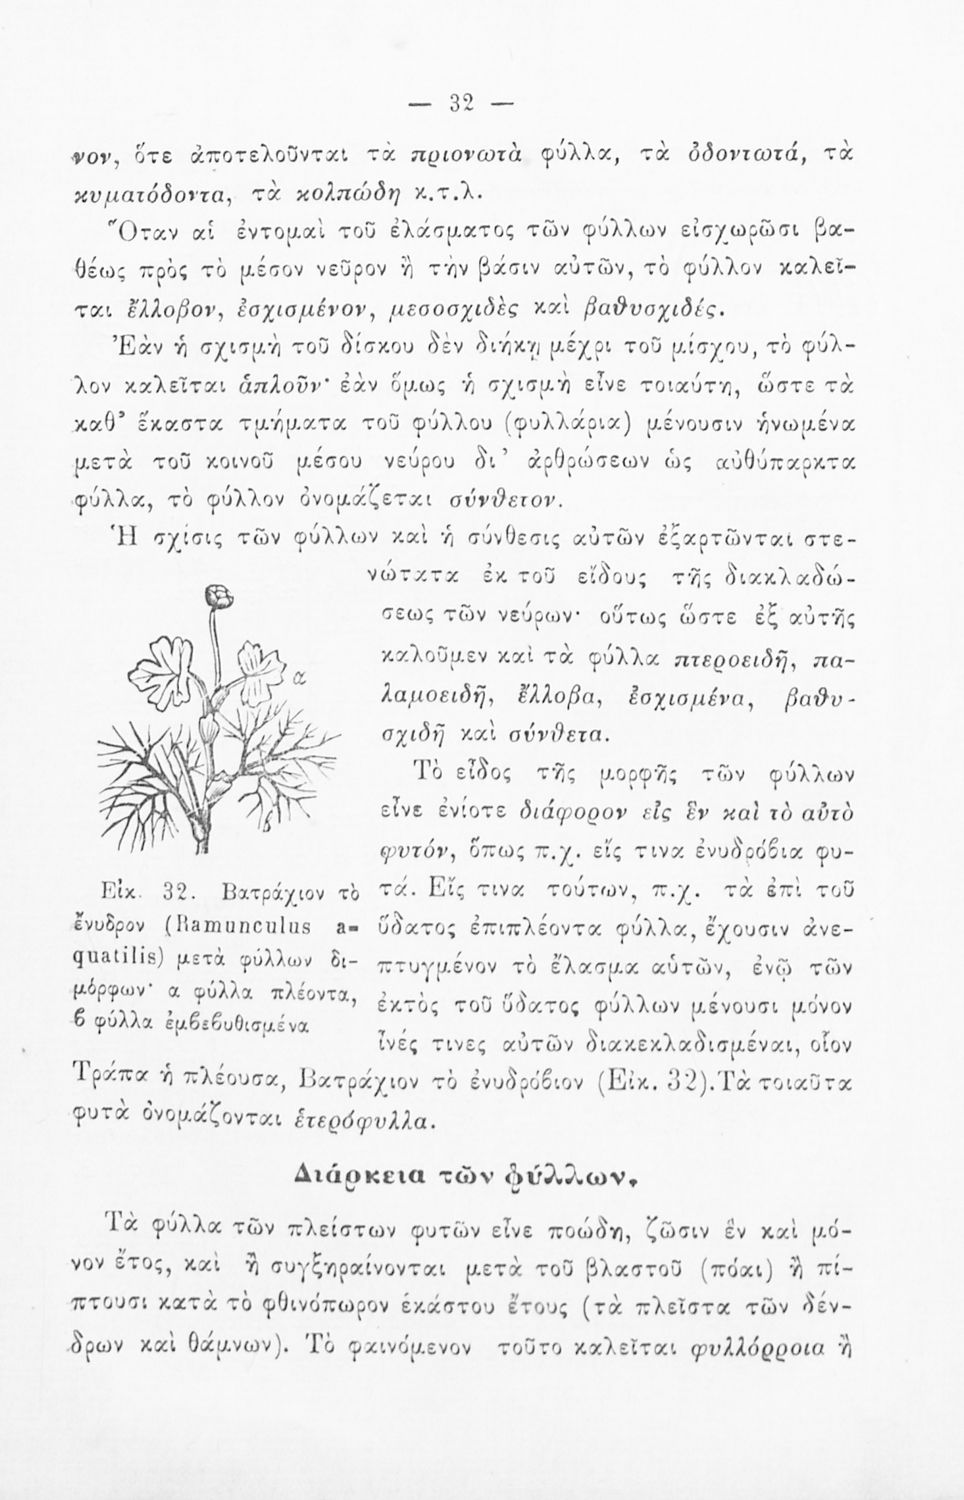 — 32 —
νον, ὅτε ἀποτελοῦνται τὰ πριονωτὰ φύλλα, τὰ ὀδοντωτά, τὰ
κυματόδοντα, τὰ κολπώδη κ.τ.λ.
Ὅταν αἱ ἐντομαὶ τοῦ ἐλάσματος τῶν φύλλων εἰσχωρῶσι βα-
θέως πρὸς τὸ μέσον νεῦρον ἢ τὴν βάσιν αὐτῶν, τὸ φύλλον καλεῖ-
ται ἔλλοβον, ἐσχισμένον, μεσοσχιδὲς καὶ βαθυσχιδές.
Ἐὰν ἡ σχισμὴ τοῦ δίσκου δὲν διήκῃ μέχρι τοῦ μίσχου, τὸ φύλ-
λον καλεῖται ἁπλοῦν· ἐὰν ὅμως ἡ σχισμὴ εἶνε τοιαύτη, ὥστε τὰ
καθ᾽ ἕκαστα τμήματα τοῦ φύλλου (φυλλάρια) μένουσιν ἡνωμένα
μετὰ τοῦ κοινοῦ μέσου νεύρου δι᾽ ἀρθρώσεων ὡς αὐθύπαρκτα
φύλλα, τὸ φύλλον ὀνομάζεται σύνθετον.
Ἡ σχίσις τῶν φύλλων καὶ ἡ σύνθεσις αὐτῶν ἐξαρτῶνται στε-
νώτατα ἐκ τοῦ εἴδους τῆς διακλαδώ-
σεως τῶν νεύρων· οὕτως ὥστε ἐξ αὐτῆς
καλοῦμεν καὶ τὰ φύλλα πτεροειδῆ, πα-
λαμοειδῆ, ἔλλοβα, ἐσχισμένα, βαθυ-
σχιδῆ καὶ σύνθετα.
Τὸ εἶδος τῆς μορφῆς τῶν φύλλων
εἶνε ἐνίοτε διάφορον εἰς ἓν καὶ τὸ αὐτὸ
φυτόν, ὅπως π.χ. εἴς τινα ἐνυδρόβια φυ-
τά. Εἴς τινα τούτων, π.χ. τὰ ἐπὶ τοῦ
ὕδατος ἐπιπλέοντα φύλλα, ἔχουσιν ἀνε-
πτυγμένον τὸ ἔλασμα αὑτῶν, ἐνῷ τῶν
ἐκτὸς τοῦ ὕδατος φύλλων μένουσι μόνον
ἶνές τινες αὐτῶν διακεκλαδισμέναι, οἷον
Τράπα ἡ πλέουσα, Βατράχιον τὸ ἐνυδρόβιον (Εἰκ. 32). Τὰ τοιαῦτα
φυτὰ ὀνομάζονται ἑτερόφυλλα.
α
β
Εἰκ. 32. Βατράχιον τὸ
ἔνυδρον (Ramunculus a-
quatilis) μετὰ φύλλων δι-
μόρφων· α φύλλα πλέοντα,
β φύλλα ἐμβεβυθισμένα
Διάρκεια τῶν φύλλων.
Τὰ φύλλα τῶν πλείστων φυτῶν εἶνε ποώδη, ζῶσιν ἓν καὶ μό-
νον ἔτος, καὶ ἢ συγξηραίνονται μετὰ τοῦ βλαστοῦ (πόαι) ἢ πί-
πτουσι κατὰ τὸ φθινόπωρον ἑκάστου ἔτους (τὰ πλεῖστα τῶν δέν-
δρων καὶ θάμνων). Τὸ φαινόμενον τοῦτο καλεῖται φυλλόρροια ἢ